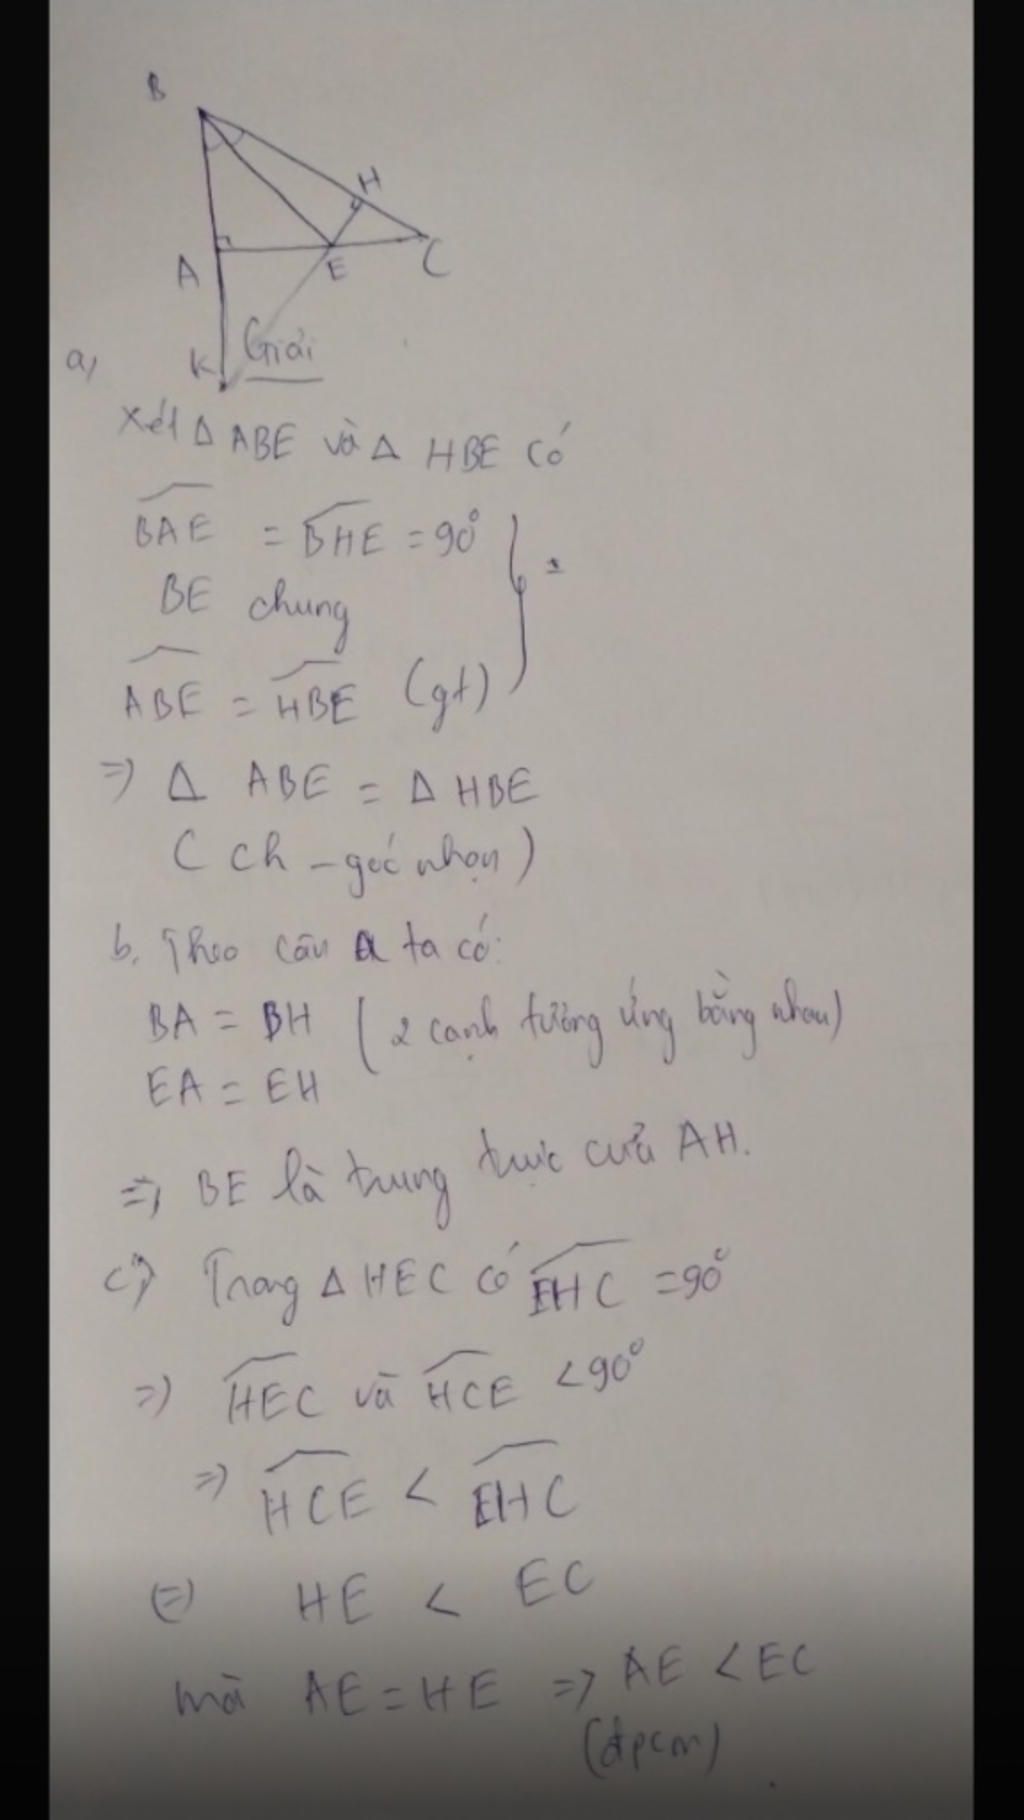 B
H
A
E
C
K
Giải
a,
Xét Δ ABE và Δ HBE có
BAE = BHE = 90°
BE chung
ABE = HBE (gt)
=> Δ ABE = Δ HBE
(ch - góc nhọn)
b. Theo câu a ta có:
BA = BH (2 cạnh tương ứng bằng nhau)
EA = EH
=> BE là trung trực của AH.
c) Trong Δ HEC có EHC = 90°
=> HEC và HCE < 90°
=> HCE < EHC
(=) HE < EC
mà AE = HE => AE < EC
(đpcm)